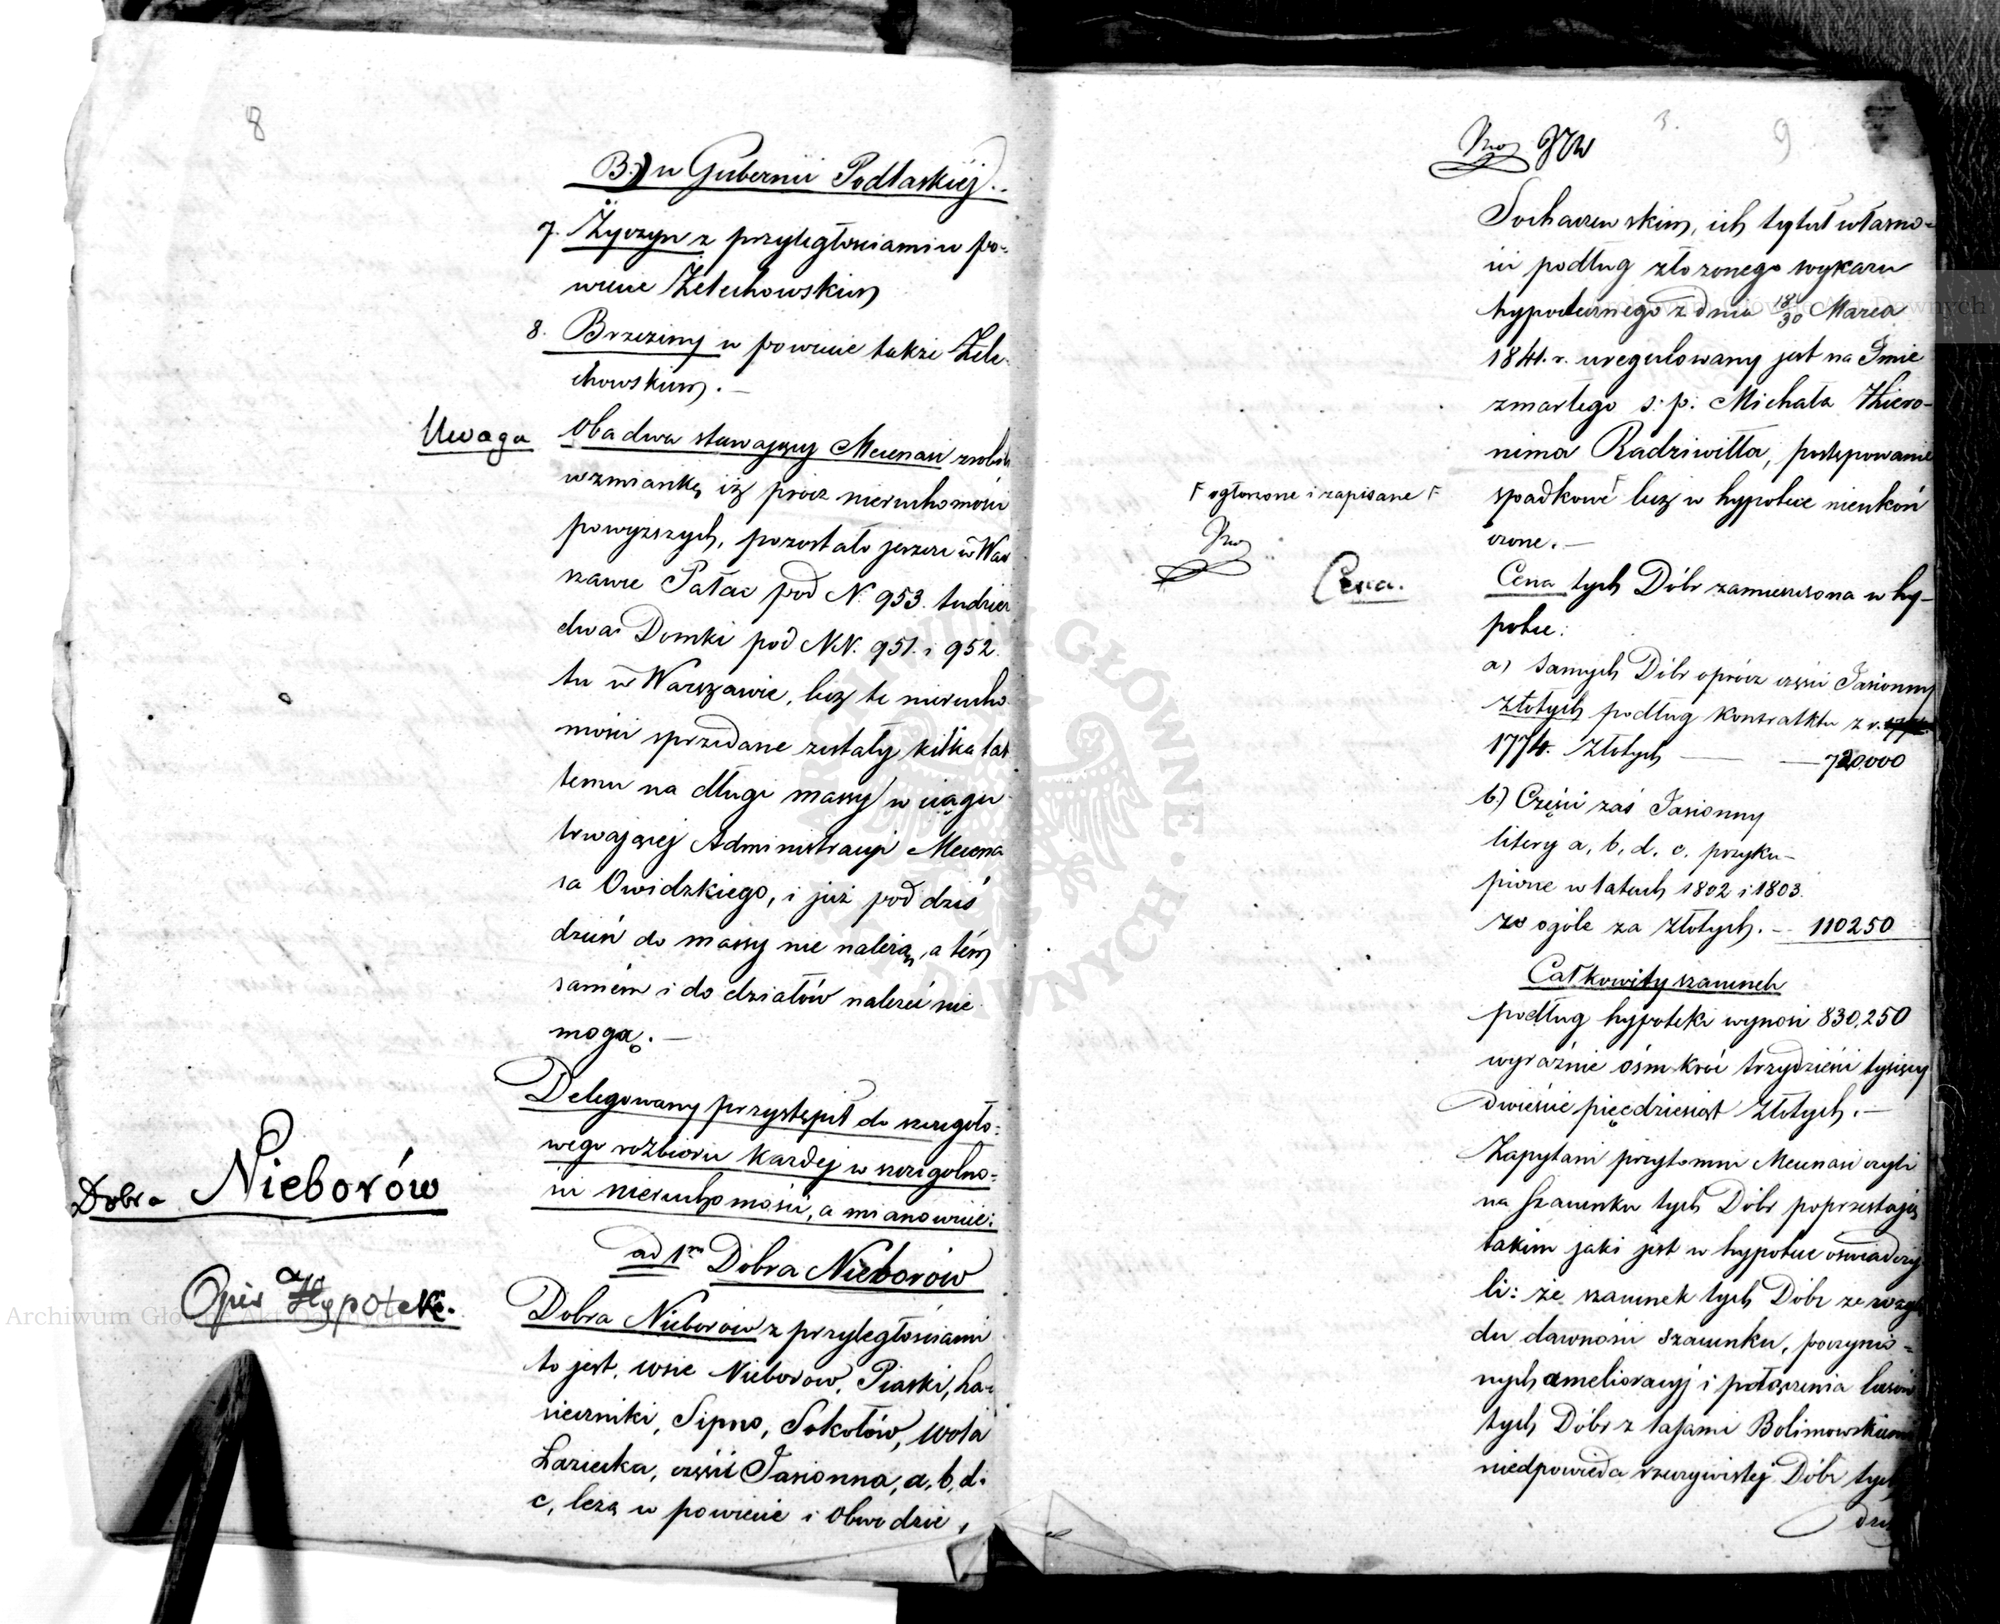 8
B.) w Gubernii Podlaskiej.
7. Życzyn z przyległościami w po-
wiecie Żelechowskim
8. Brzeziny w powiecie także Żele-
chowskim. —
Uwaga
Obadwa stawający Mecenasi zrobili
wzmiankę iż prócz nieruchomości
powyższych, pozostało jeszcze w War
szawie Pałac pod N. 953. tudzież
dwa Domki pod NN. 951. i 952.
tu w Warszawie, lecz te nierucho-
mości sprzedane zostały kilka lat
temu na długi massy w ciągu
trwającej Administracyi Mecena
sa Owidzkiego, i już pod dziś
dzień do massy nie należą, a tém
samém i do działów należeć nie
mogą. —
Delegowany przystąpił do szczegóło-
wego rozbioru każdej w szczególno-
ści nieruchomości, a mianowicie:
ad 1m Dobra Nieborów
Dobra Nieborów
Opis Hypoteki.
Dobra Nieborów z przyległościami
to jest, wsie Nieborów, Piaski, Ła-
sieczniki, Sypno, Sokołów, Wola
Łasiecka, część Jasionna, a, b, d.
c, leżą w powiecie i Obwodzie,
3.
9
JW
Sochaczewskim, ich tytuł własno-
ści podług złożonego wykazu
hypotecznego z dnia 18/30 Marca
1841. r. uregulowany jest na Imie
zmarłego ś: p: Michała Hiero-
nima Radziwiłła, postępowanie
spadkowe ⌈ lecz w hypotece nieukoń
czone. —
⌈ ogłoszone i zapisane ⌈
Cena.
Cena tych Dóbr zamieszczona w hy-
potece:
a) Samych Dóbr oprócz części Jasionny
złotych podług Kontraktu z r.
1774. Złotych — — 720000
b.) Części zaś Jasionny
litery a, b, d. c. przyku-
pione w latach 1802 i 1803.
w ogóle za złotych. — 110250
Całkowity szacunek
podług hypoteki wynosi 830,250
wyraźnie ośmkroć trzydzieści tysięcy
dwieście pięćdziesiąt Złotych. —
Zapytani przytomni Mecenasi czyli
na szacunku tych Dóbr poprzestają
takim jaki jest w hypotece oświadczy
li: że szacunek tych Dóbr ze wzglę
du dawności szacunku, poczynio-
nych amelioracyj i połączenia lasów
tych Dóbr z lasami Bolimowskiemi
nieodpowiada rzeczywistej Dóbr tych
Archiwum Główne Akt Dawnych
ARCHIWUM GŁÓWNE AKT DAWNYCH
Archiwum Główne Akt Dawnych